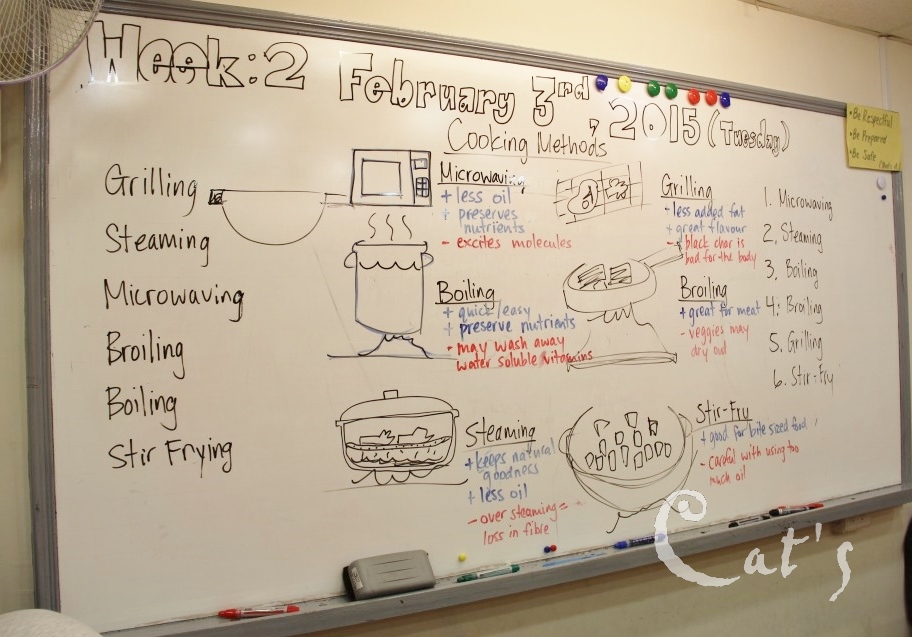 Week:2 February 3rd, 2015 (Tuesday)
Cooking Methods
Grilling
Steaming
Microwaving
Broiling
Boiling
Stir Frying
Microwaving
+ less oil
+ preserves
nutrients
- excites molecules
Boiling
+ quick/easy
+ preserve nutrients
- may wash away
water soluble vitamins
Steaming
+ keeps natural
goodness
+ less oil
- over steaming =
loss in fibre
Grilling
- less added fat
+ great flavour
- black char is
bad for the body
Broiling
+ great for meat
- veggies may
dry out
Stir-Fry
+ good for bite sized food
- careful with using too
much oil
1. Microwaving
2. Steaming
3. Boiling
4. Broiling
5. Grilling
6. Stir-Fry
• Be Respectful
• Be Prepared
• Be Safe
Cat's